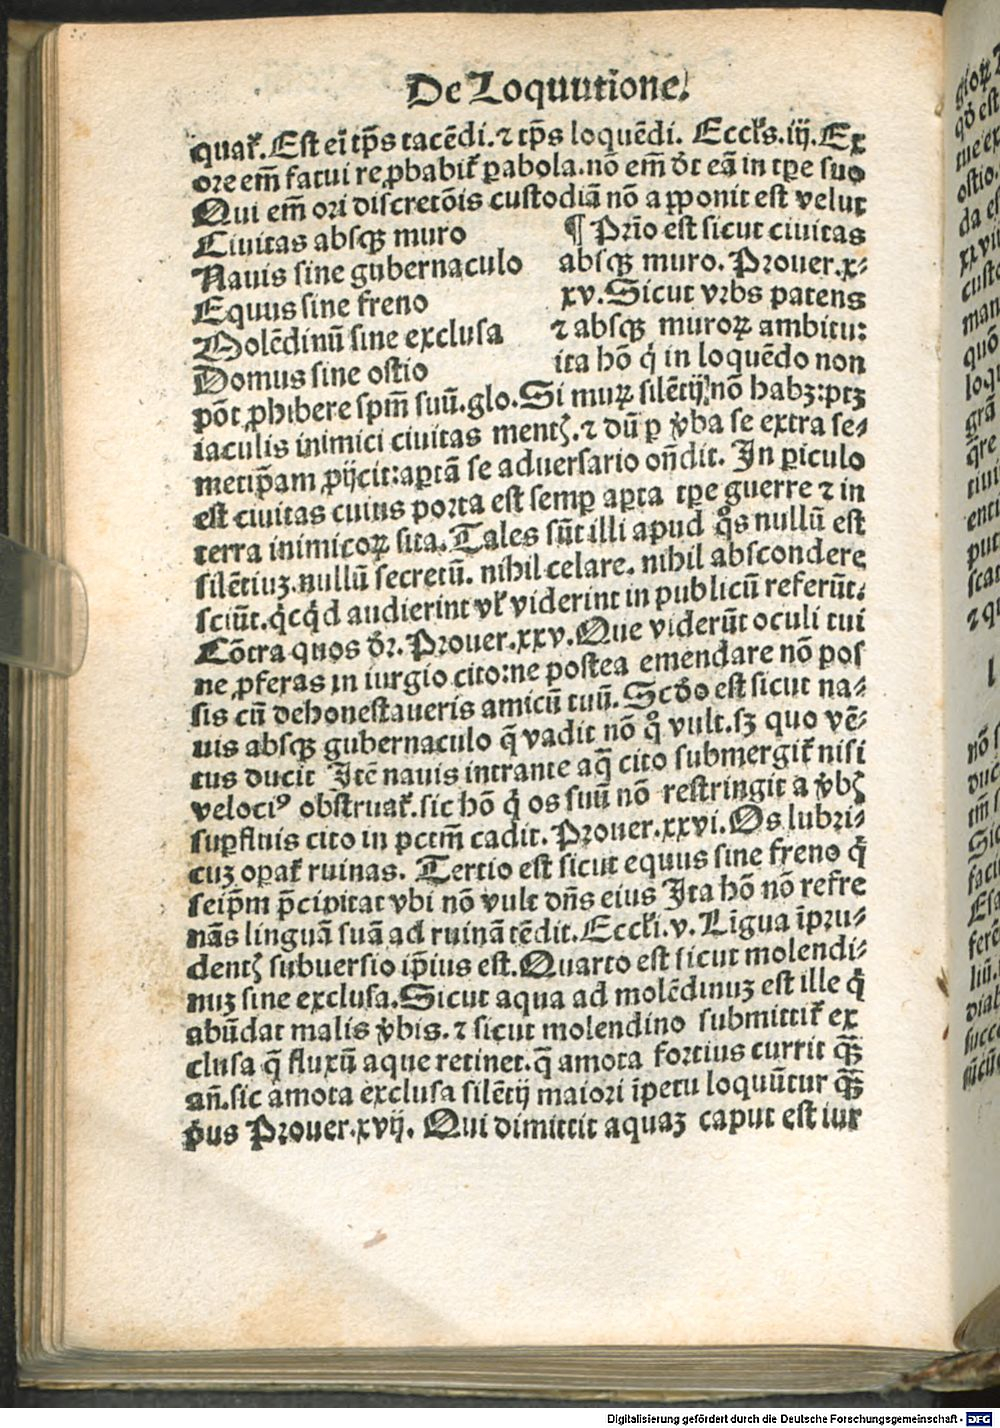 De Loquutione.
quaꝛ̃. Est ei᷒ tp̃s tacẽdi. ⁊ tp̃s loquẽdi. Eccl̃s. iij. Ex
ore em̃ fatui reꝓbabil̃ ꝑabola. nõ em̃ dc̃t eã in tꝑe suo
Qui em̃ ori discretõis custodiã nõ aꝑponit est velut
Ciuitas absqꝫ muro
Nauis sine gubernaculo
Equus sine freno
Molẽdinũ sine exclusa
Domus sine ostio
¶ Prĩo est sicut ciuitas
absqꝫ muro. Prouer. x⸗
xv. Sicut vrbs patens
⁊ absqꝫ muroꝝ ambitu:
ita hõ q̇ in loquẽdo non
põt ꝓhibere spm̃ suũ. glo. Si muꝝ silẽtij nõ habꝫ: ptꝫ
iaculis inimici ciuitas mentꝭ. ⁊ dũ ꝑ v̾ba se extra se⸗
metip̃am ꝓijcit: aꝑtã se aduersario oñdit. In ꝑiculo
est ciuitas cuius porta est semꝑ aꝑta tꝑe guerre ⁊ in
terra inimicoꝝ sita. Tales sũt illi apud qͦs nullũ est
silẽtiuꝫ. nullũ secretũ. nihil celare. nihil abscondere
sciũt. q̇cq̇d audierint vl̃ viderint in publicũ referũt.
Cõtra quos dr̃. Prouer. xxv. Que viderũt oculi tui
ne ꝓferas in iurgio cito: ne postea emendare nõ pos
sis cũ dehonestaueris amicũ tuũ. Scd̾o est sicut na⸗
uis absqꝫ gubernaculo q̃ vadit nõ qͦ vult. sꝫ quo vẽ⸗
tus ducit Itẽ nauis intrante aq̃ cito submergit̃ nisi
velociꝰ obstruat̃. sic hõ q̇ os suũ nõ restringit a v̾bꝭ
suꝑfluis cito in pctm̃ cadit. Prouer. xxvi. Os lubri⸗
cuꝫ oꝑat̃ ruinas. Tertio est sicut equus sine freno q̇
seip̃m p̃cipitat vbi nõ vult dñs eius Ita hõ nõ refre
nãs linguã suã ad ruinã tẽdit. Eccl̃i. v. Lĩgua ĩpru⸗
dentꝭ subuersio ip̃ius est. Quarto est sicut molendi⸗
nuꝫ sine exclusa. Sicut aqua ad molẽdinuꝫ est ille q̇
abũdat malis v̾bis. ⁊ sicut molendino submittit̃ ex
clusa q̃ fluxũ aque retinet. q̃ amota fortius currit qꝫ̃
añ. sic amota exclusa silẽtij maiori ĩpetu loquũtur qꝫ̃
pͥus Prouer. xvij. Qui dimittit aquaꝫ caput est iur
Digitalisierung gefördert durch die Deutsche Forschungsgemeinschaft - DFG